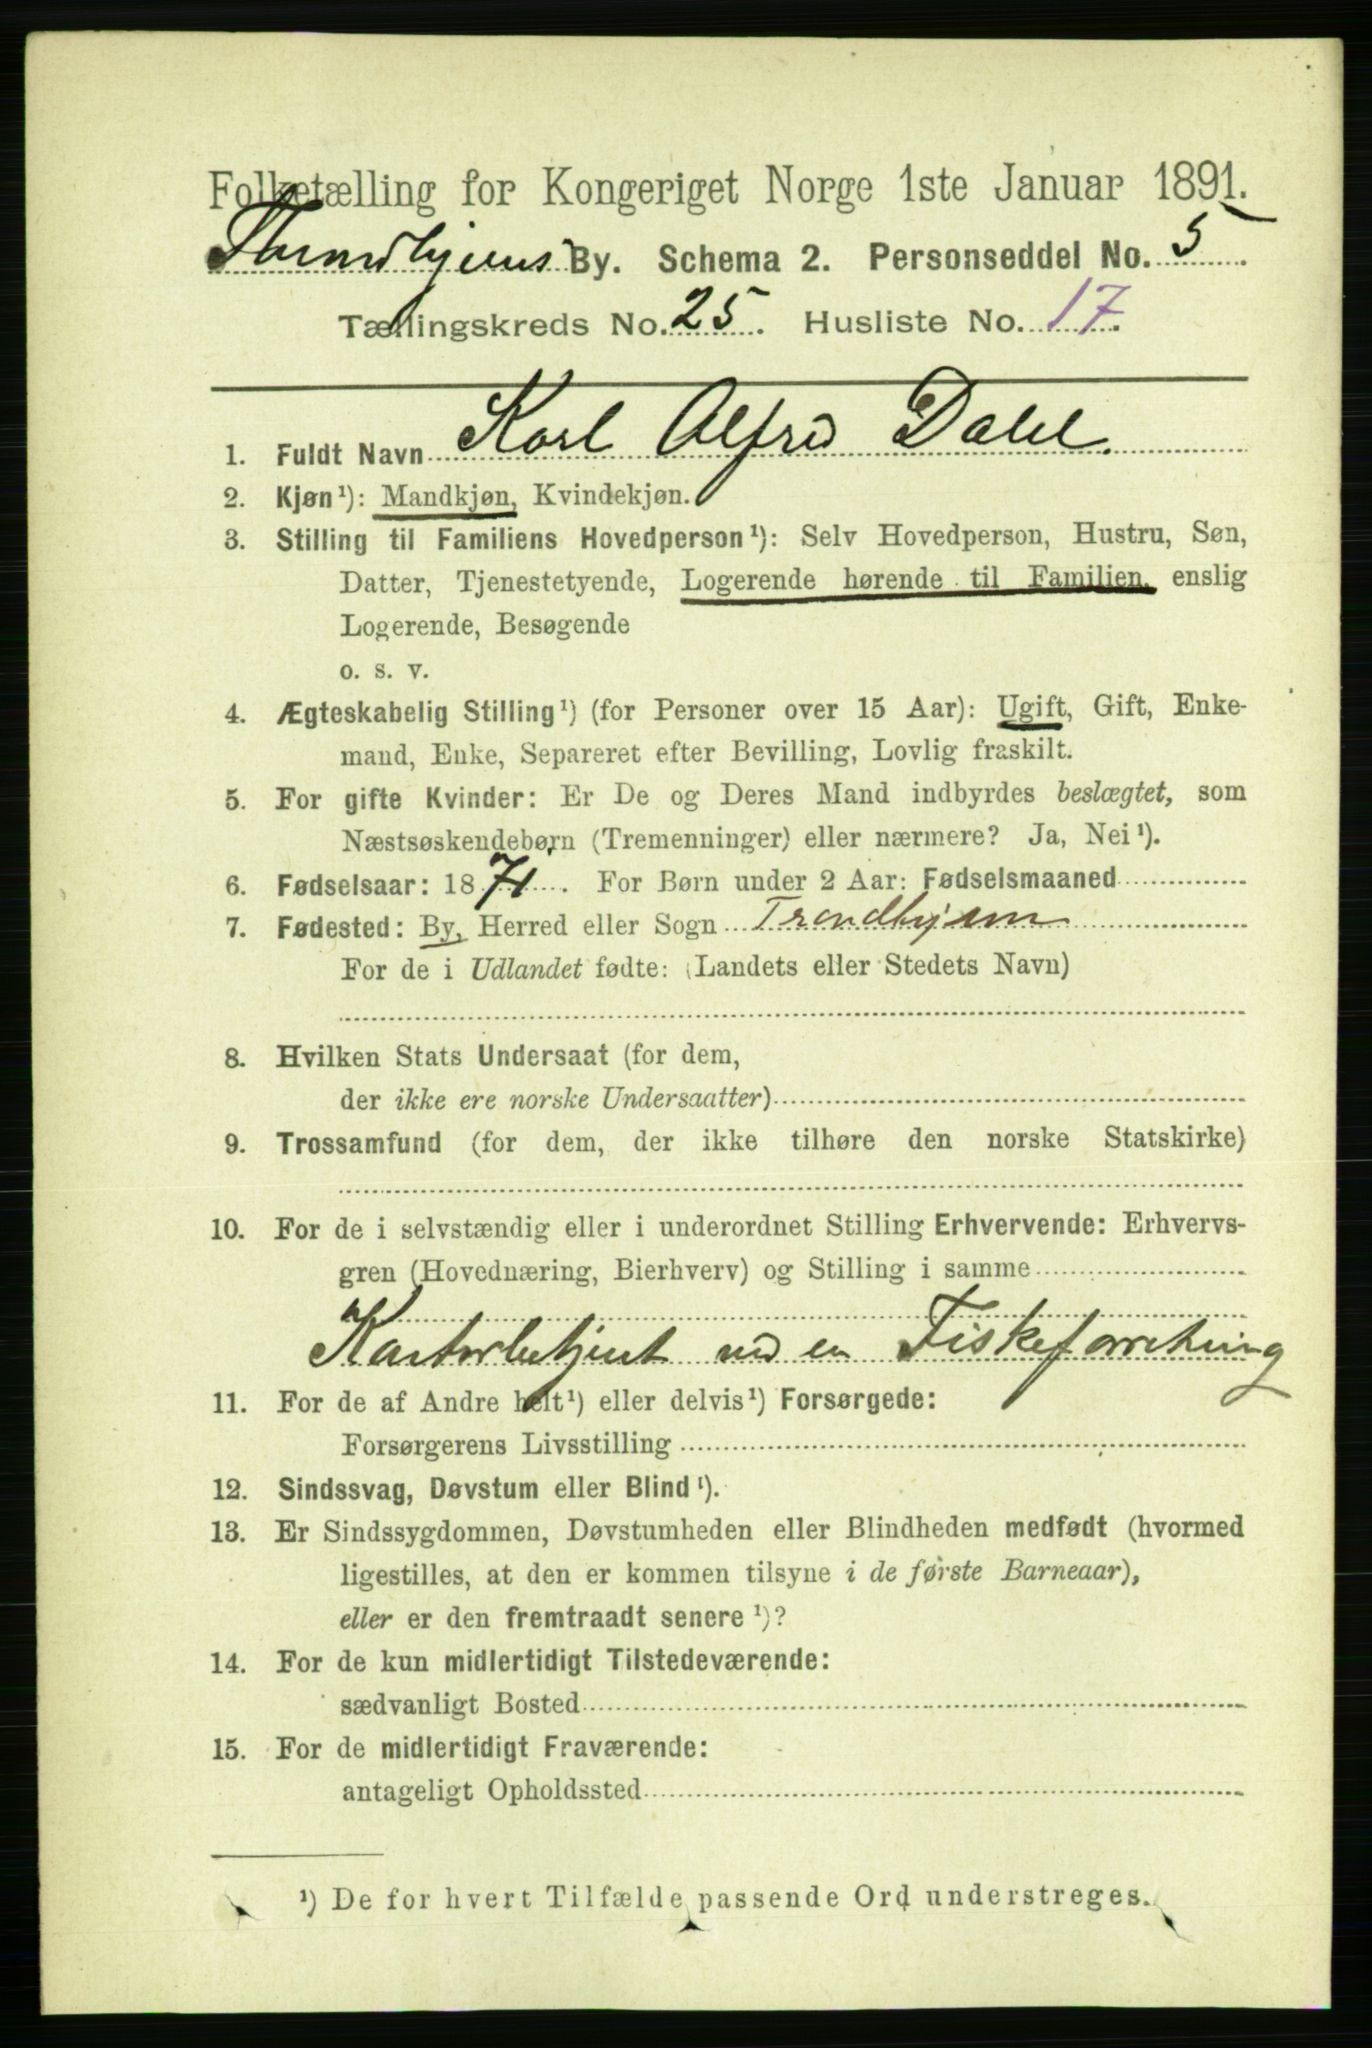 Folketælling for Kongeriget Norge 1ste Januar 1891.
Throndhjems By. Schema 2. Personseddel No. 5.
Tællingskreds No. 25. Husliste No. 17.
1. Fuldt Navn Karl Alfred Dahl.
2. Kjøn¹): Mandkjøn, Kvindekjøn.
3. Stilling til Familiens Hovedperson¹): Selv Hovedperson, Hustru, Søn,
Datter, Tjenestetyende, Logerende hørende til Familien, enslig
Logerende, Besøgende
o. s. v.
4. Ægteskabelig Stilling¹) (for Personer over 15 Aar): Ugift, Gift, Enke-
mand, Enke, Separeret efter Bevilling, Lovlig fraskilt.
5. For gifte Kvinder: Er De og Deres Mand indbyrdes beslægtet, som
Næstsøskendebørn (Tremenninger) eller nærmere? Ja, Nei¹).
6. Fødselsaar: 1871. For Børn under 2 Aar: Fødselsmaaned
7. Fødested: By, Herred eller Sogn Trondhjem
For de i Udlandet fødte: (Landets eller Stedets Navn)
8. Hvilken Stats Undersaat (for dem,
der ikke ere norske Undersaatter)
9. Trossamfund (for dem, der ikke tilhøre den norske Statskirke)
10. For de i selvstændig eller i underordnet Stilling Erhvervende: Erhvervs-
gren (Hovednæring, Bierhverv) og Stilling i samme
Kontorbetjent ved en Fiskeforretning
11. For de af Andre helt¹) eller delvis¹) Forsørgede:
Forsørgerens Livsstilling
12. Sindssvag, Døvstum eller Blind¹).
13. Er Sindssygdommen, Døvstumheden eller Blindheden medfødt (hvormed
ligestilles, at den er kommen tilsyne i de første Barneaar),
eller er den fremtraadt senere¹)?
14. For de kun midlertidigt Tilstedeværende:
sædvanligt Bosted
15. For de midlertidigt Fraværende:
antageligt Opholdssted
¹) De for hvert Tilfælde passende Ord understreges.